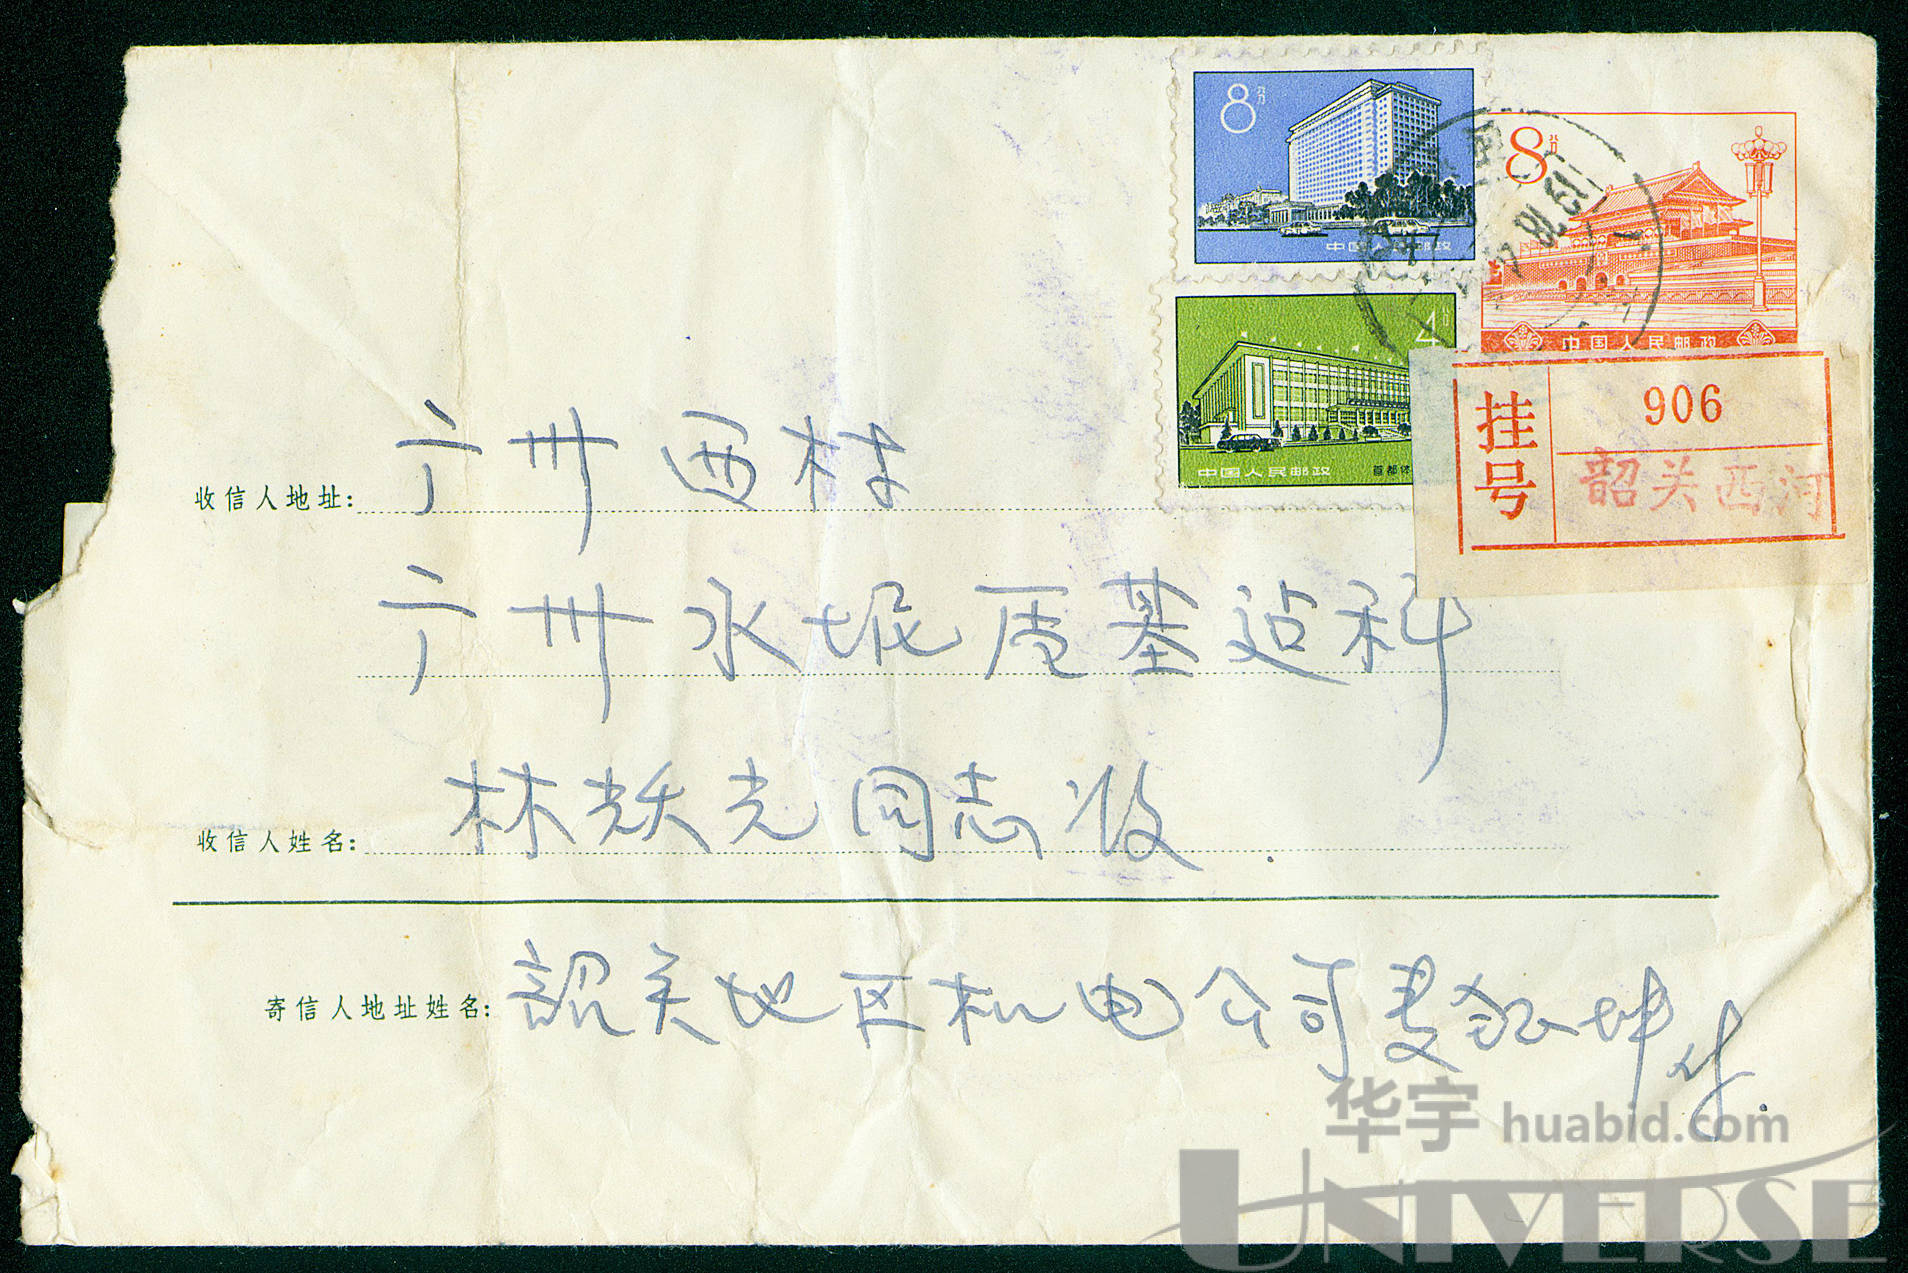 8分
中国人民邮政
8分
中国人民邮政
4分
中国人民邮政 首都体
挂号 906
韶关西河
收信人地址: 广州西村
广州水坭厂基建科
收信人姓名: 林耀光同志收.
寄信人地址姓名: 韶关地区机电公司麦 坤
华宇 huabid.com
UNIVERSE